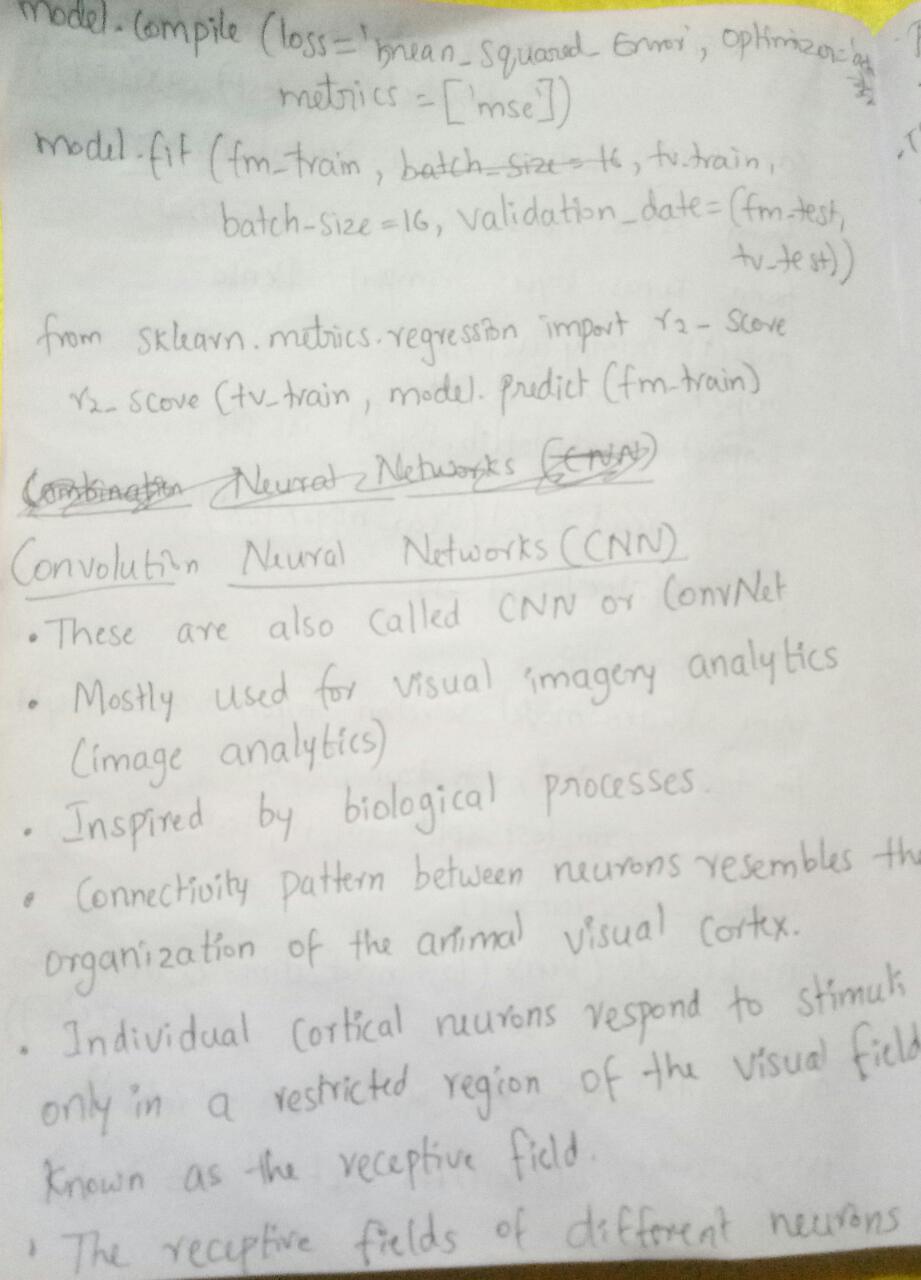 model.compile (loss='mean_squared_Error', optimizer=
metrics = ['mse'])
model.fit (fm_train, batch_size=16, tv.train,
batch-size=16, validation_date=(fm-test,
tv_test))
from sklearn.metrics.regression import r2-score
r2_score (tv_train, model.predict (fm_train)
Combination Neural Networks (CNN)
Convolution Neural Networks (CNN)
• These are also called CNN or ConvNet
• Mostly used for visual imagery analytics
(image analytics)
• Inspired by biological processes.
• Connectivity pattern between neurons resembles the
organization of the animal visual cortex.
• Individual cortical neurons respond to stimuli
only in a restricted region of the visual field
known as the receptive field.
• The receptive fields of different neurons